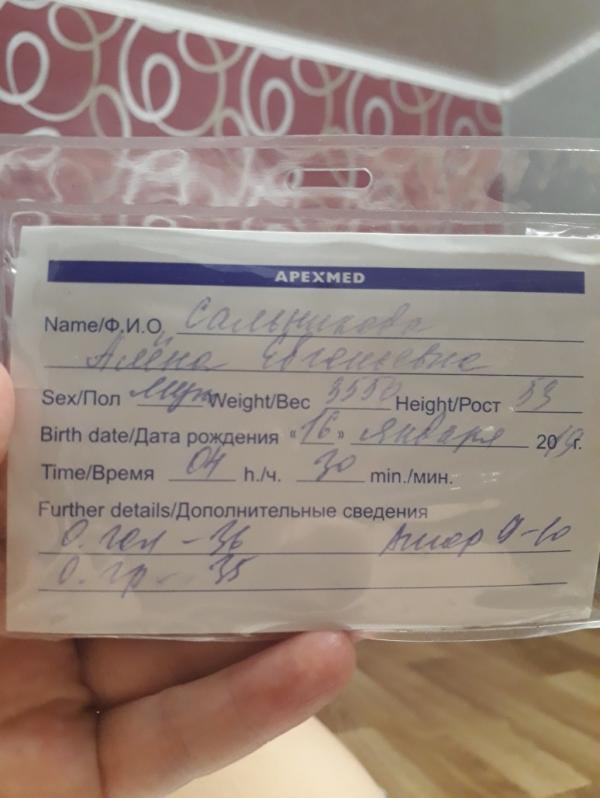 APEXMED
Name/Ф.И.О. Сальникова
Алёна Евгеньевна
Sex/Пол муж Weight/Вес 3550 Height/Рост 53
Birth date/Дата рождения «16» января 2019г.
Time/Время 04 h./ч. 30 min./мин.
Further details/Дополнительные сведения
О. гол - 36 Апгар 9-10
О. гр. - 35